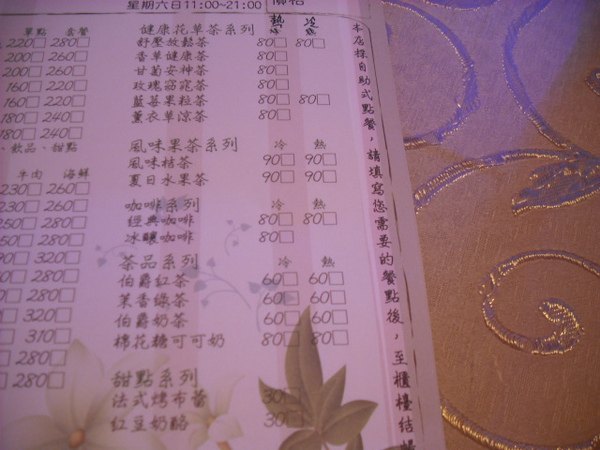 星期六日11:00~21:00
單點 套餐
220□ 280□
200□ 260□
200□ 260□
160□ 220□
160□ 220□
180□ 240□
180□ 240□
、飲品、甜點
牛肉 海鮮
230□ 260□
230□ 260□
250□ 280□
250□ 280□
290□ 320□
280□
280□
320□
310□
280□
280□
健康花草茶系列 熱 冷
舒壓放鬆茶 80□ 80□
香草健康茶 80□
甘菊安神茶 80□
玫瑰窈窕茶 80□
藍莓果粒茶 80□ 80□
薰衣草涼茶 80□
風味果茶系列 冷 熱
風味桔茶 90□ 90□
夏日水果茶 90□ 90□
咖啡系列 冷 熱
經典咖啡 80□ 80□
冰釀咖啡 80□
茶品系列 冷 熱
伯爵紅茶 60□ 60□
茉香綠茶 60□ 60□
伯爵奶茶 60□ 60□
棉花糖可可奶 80□ 80□
甜點系列
法式烤布蕾 30□
紅豆奶酪 30□
本店採自助式點餐，請填寫您需要的餐點後，至櫃檯結